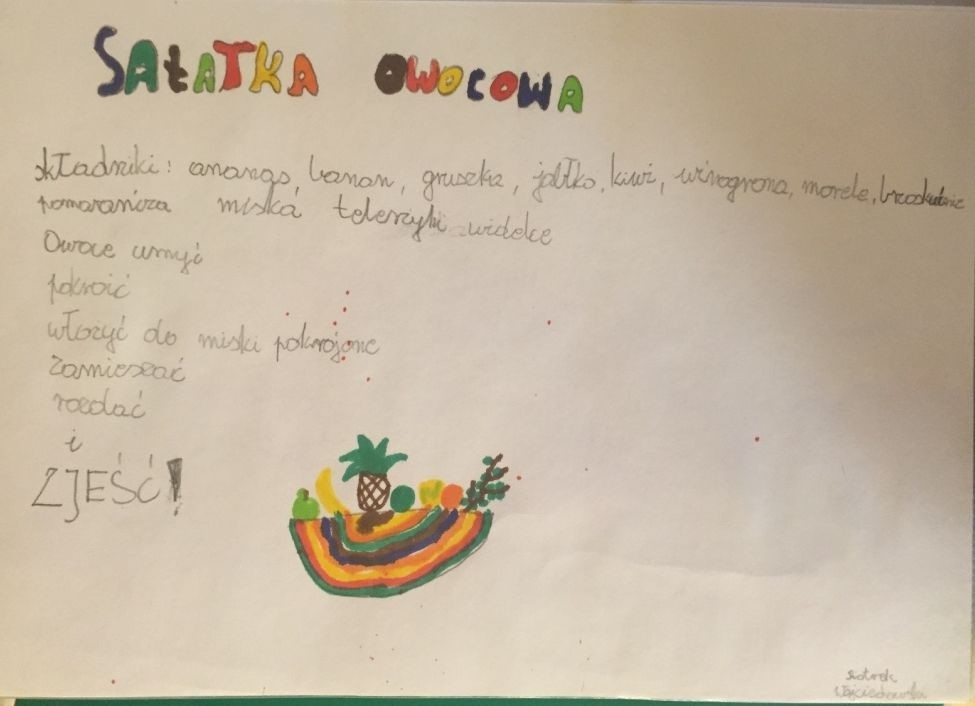 SAŁATKA OWOCOWA
składniki: ananas, banan, gruszka, jabłko, kiwi, winogrona, morele, brzoskwinie
pomarańcza miska telerzyki widelce
Owoce umyć
pokroić
włożyć do miski pokrojone
Zamieszać
rozdać
i
ZJEŚĆ!
Piotrek
Wojciechowski